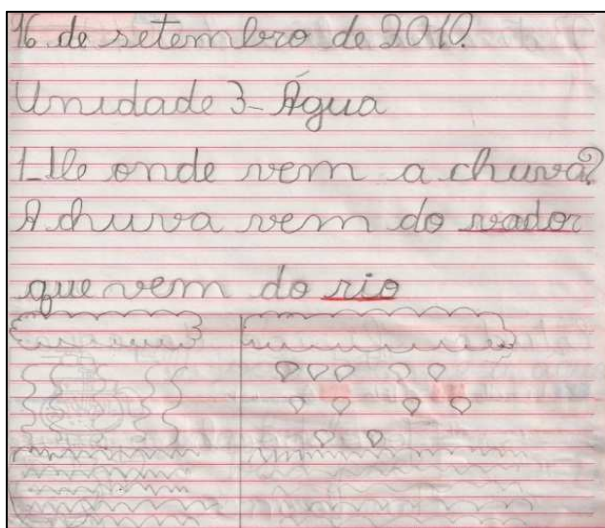 16 de setembro de 2010.
Unidade 3- Água
1-De onde vem a chuva?
A chuva vem do vador
que vem do rio